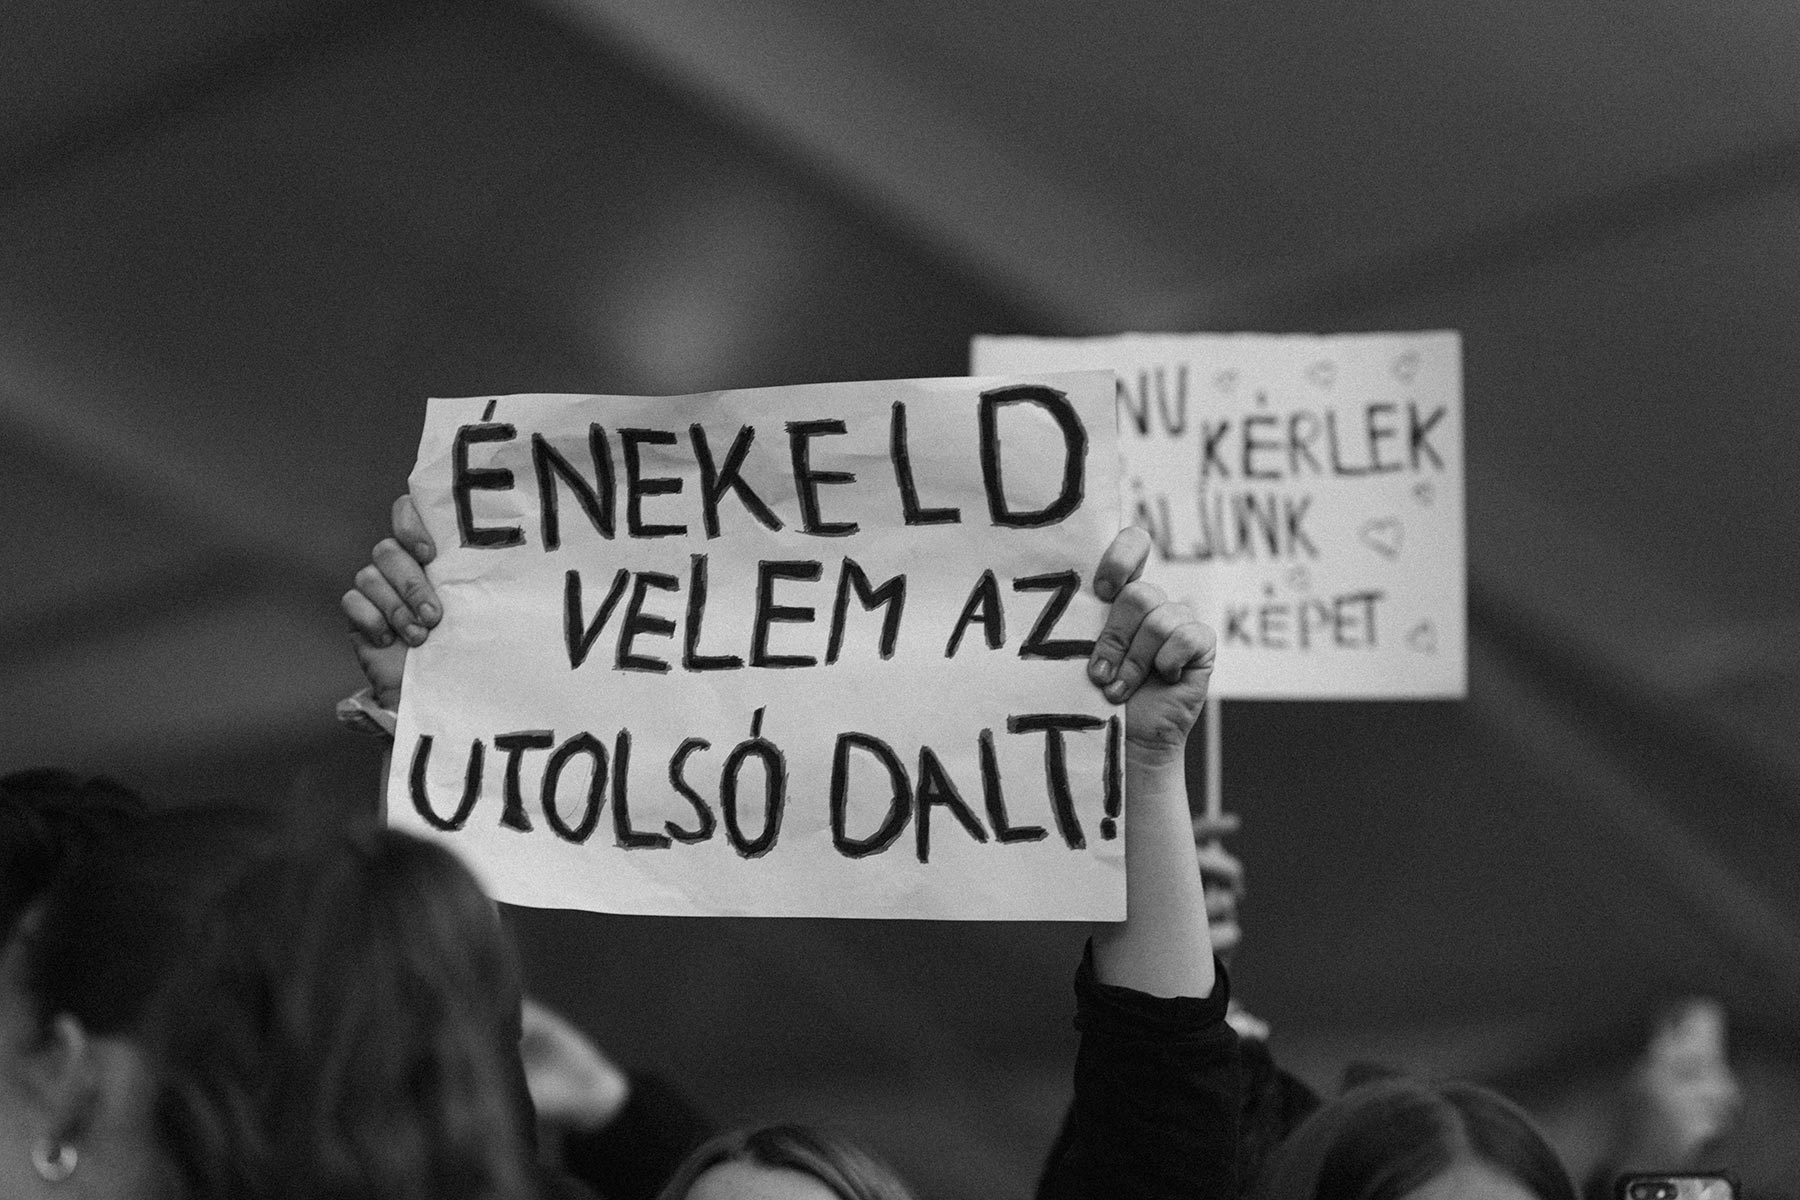 ÉNEKELD
VELEM AZ
UTOLSÓ DALT!
KÉRLEK
KÉPET